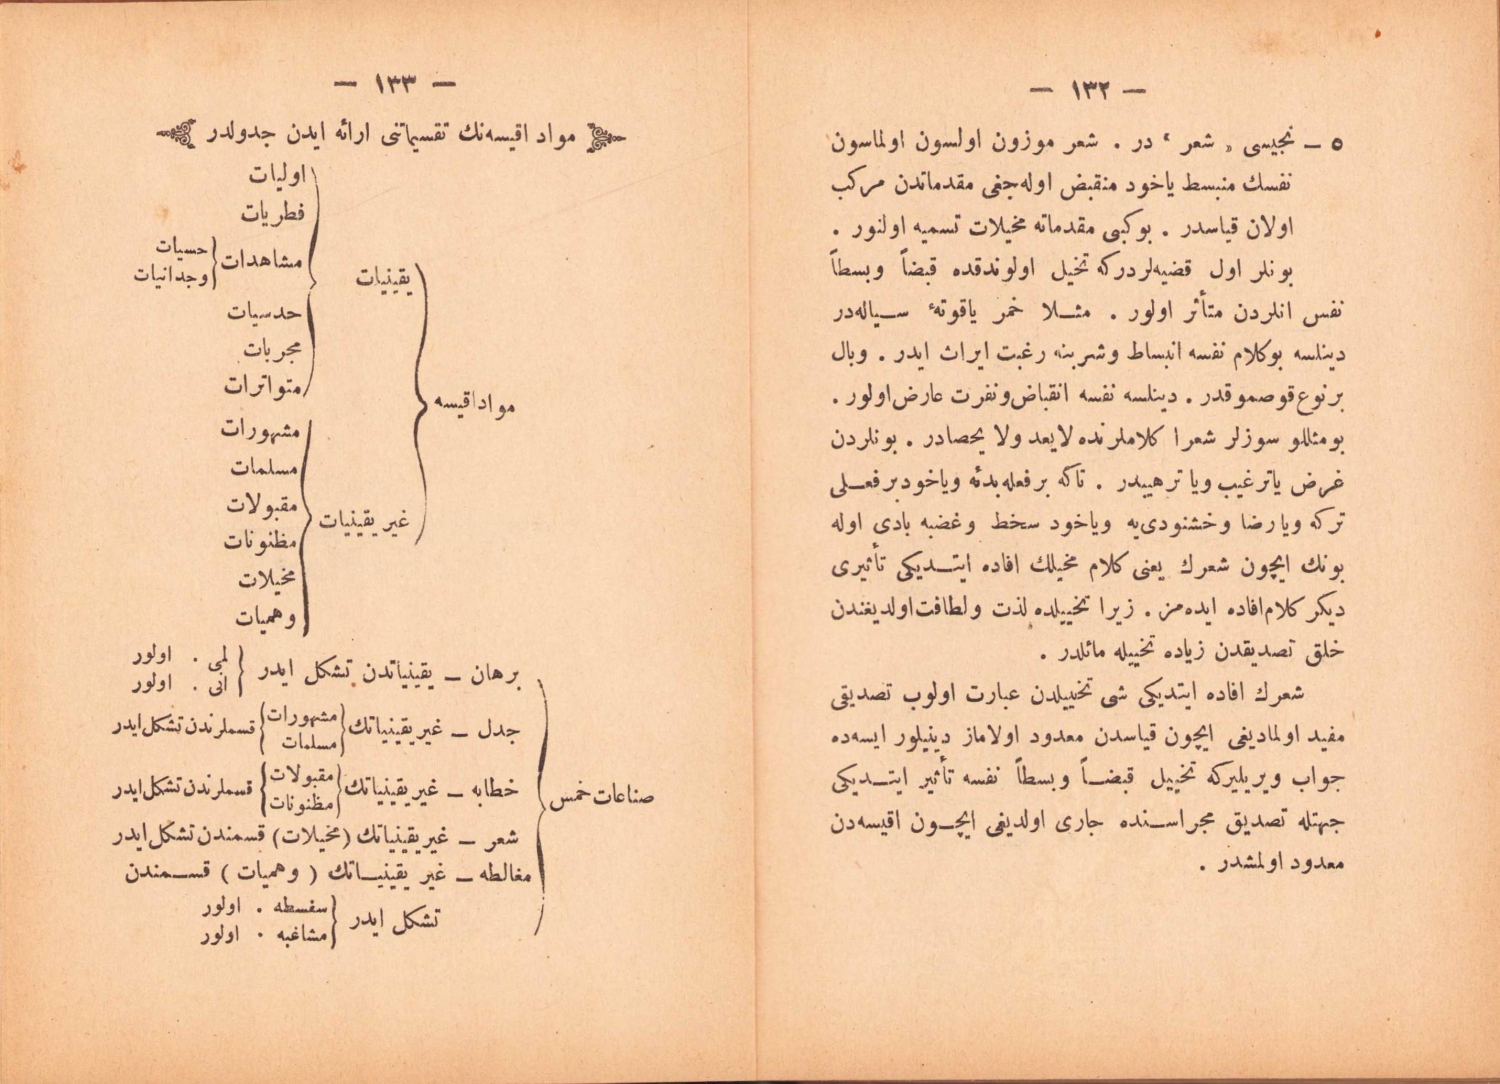 — ١٣٢ —
٥ – نجیسی « شعر » در . شعر موزون اولسون اولماسون
نفسك منبسط یاخود منقبض اوله‌جغی مقدماتدن مرکب
اولان قیاسدر . بوکبی مقدماته مخیلات تسمیه اولنور .
بونلر اول قضیه‌لردرکه تخیل اولوندقده قبضاً وبسطاً
نفس انلردن متأثر اولور . مثلا خمر یاقوتهٔ سیاله‌در
دینلسه بوکلام نفسه انبساط وشربنه رغبت ایراث ایدر . وبال
برنوع قوصموقدر . دینلسه نفسه انقباض ونفرت عارض اولور .
بومثللو سوزلر شعرا کلاملرنده لایعد ولا یحصادر . بونلردن
غرض یاترغیب ویا ترهیبدر . تاکه برفعله بدئه ویاخود برفعلی
ترکه ویا رضا وخشنودی‌یه ویاخود سخط وغضبه بادی اوله
بونك ایچون شعرك یعنی کلام مخیلك افاده ایتدیکی تأثیری
دیکر کلام افاده ایده‌مز . زیرا تخییلده لذت ولطافت اولدیغندن
خلق تصدیقدن زیاده تخییله مائلدر .
شعرك افاده ایتدیکی شی تخییلدن عبارت اولوب تصدیقی
مفید اولمادیغی ایچون قیاسدن معدود اولاماز دینیلور ایسه‌ده
جواب ویریلیرکه تخییل قبضاً وبسطاً نفسه تأثیر ایتدیکی
جهتله تصدیق مجراسنده جاری اولدیغی ایچون اقیسه‌دن
معدود اولمشدر .
— ١٣٣ —
مواد اقیسه‌نك تقسیماتنی ارائه ایدن جدولدر
مواد اقیسه
یقینیات
اولیات
فطریات
مشاهدات
حسیات
وجدانیات
حدسیات
مجربات
متواترات
غیر یقینیات
مشهورات
مسلمات
مقبولات
مظنونات
مخیلات
وهمیات
صناعات خمس
برهان – یقینیاتدن تشکل ایدر
لمی . اولور
انی . اولور
جدل – غیر یقینیاتك
مشهورات
مسلمات
قسملرندن تشکل ایدر
خطابه – غیر یقینیاتك
مقبولات
مظنونات
قسملرندن تشکل ایدر
شعر – غیر یقینیاتك (مخیلات) قسمندن تشکل ایدر
مغالطه – غیر یقینیاتك ( وهمیات ) قسمندن
تشکل ایدر
سفسطه . اولور
مشاغبه . اولور